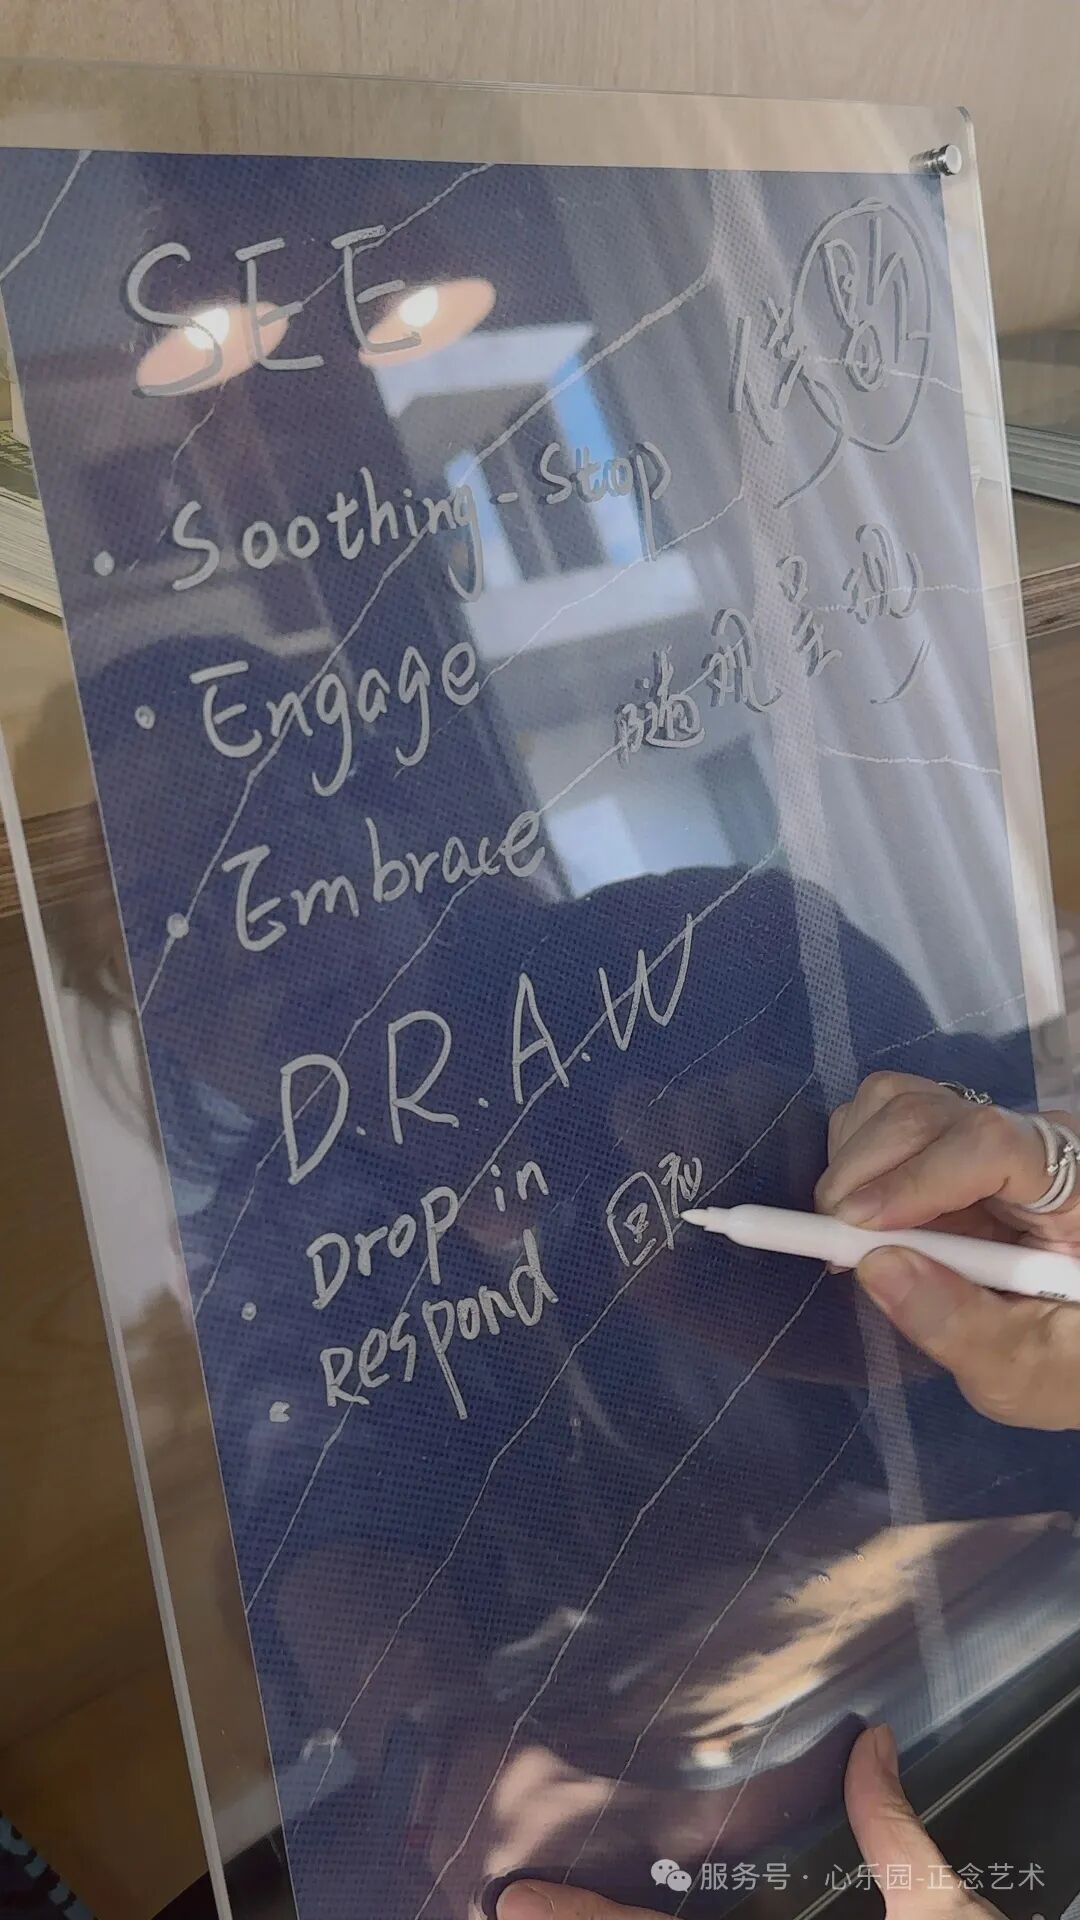 SEE
· Soothing - Stop
· Engage
随观呈现
· Embrace
D.R.A.W
· Drop in
· Respond
服务号 · 心乐园-正念艺术